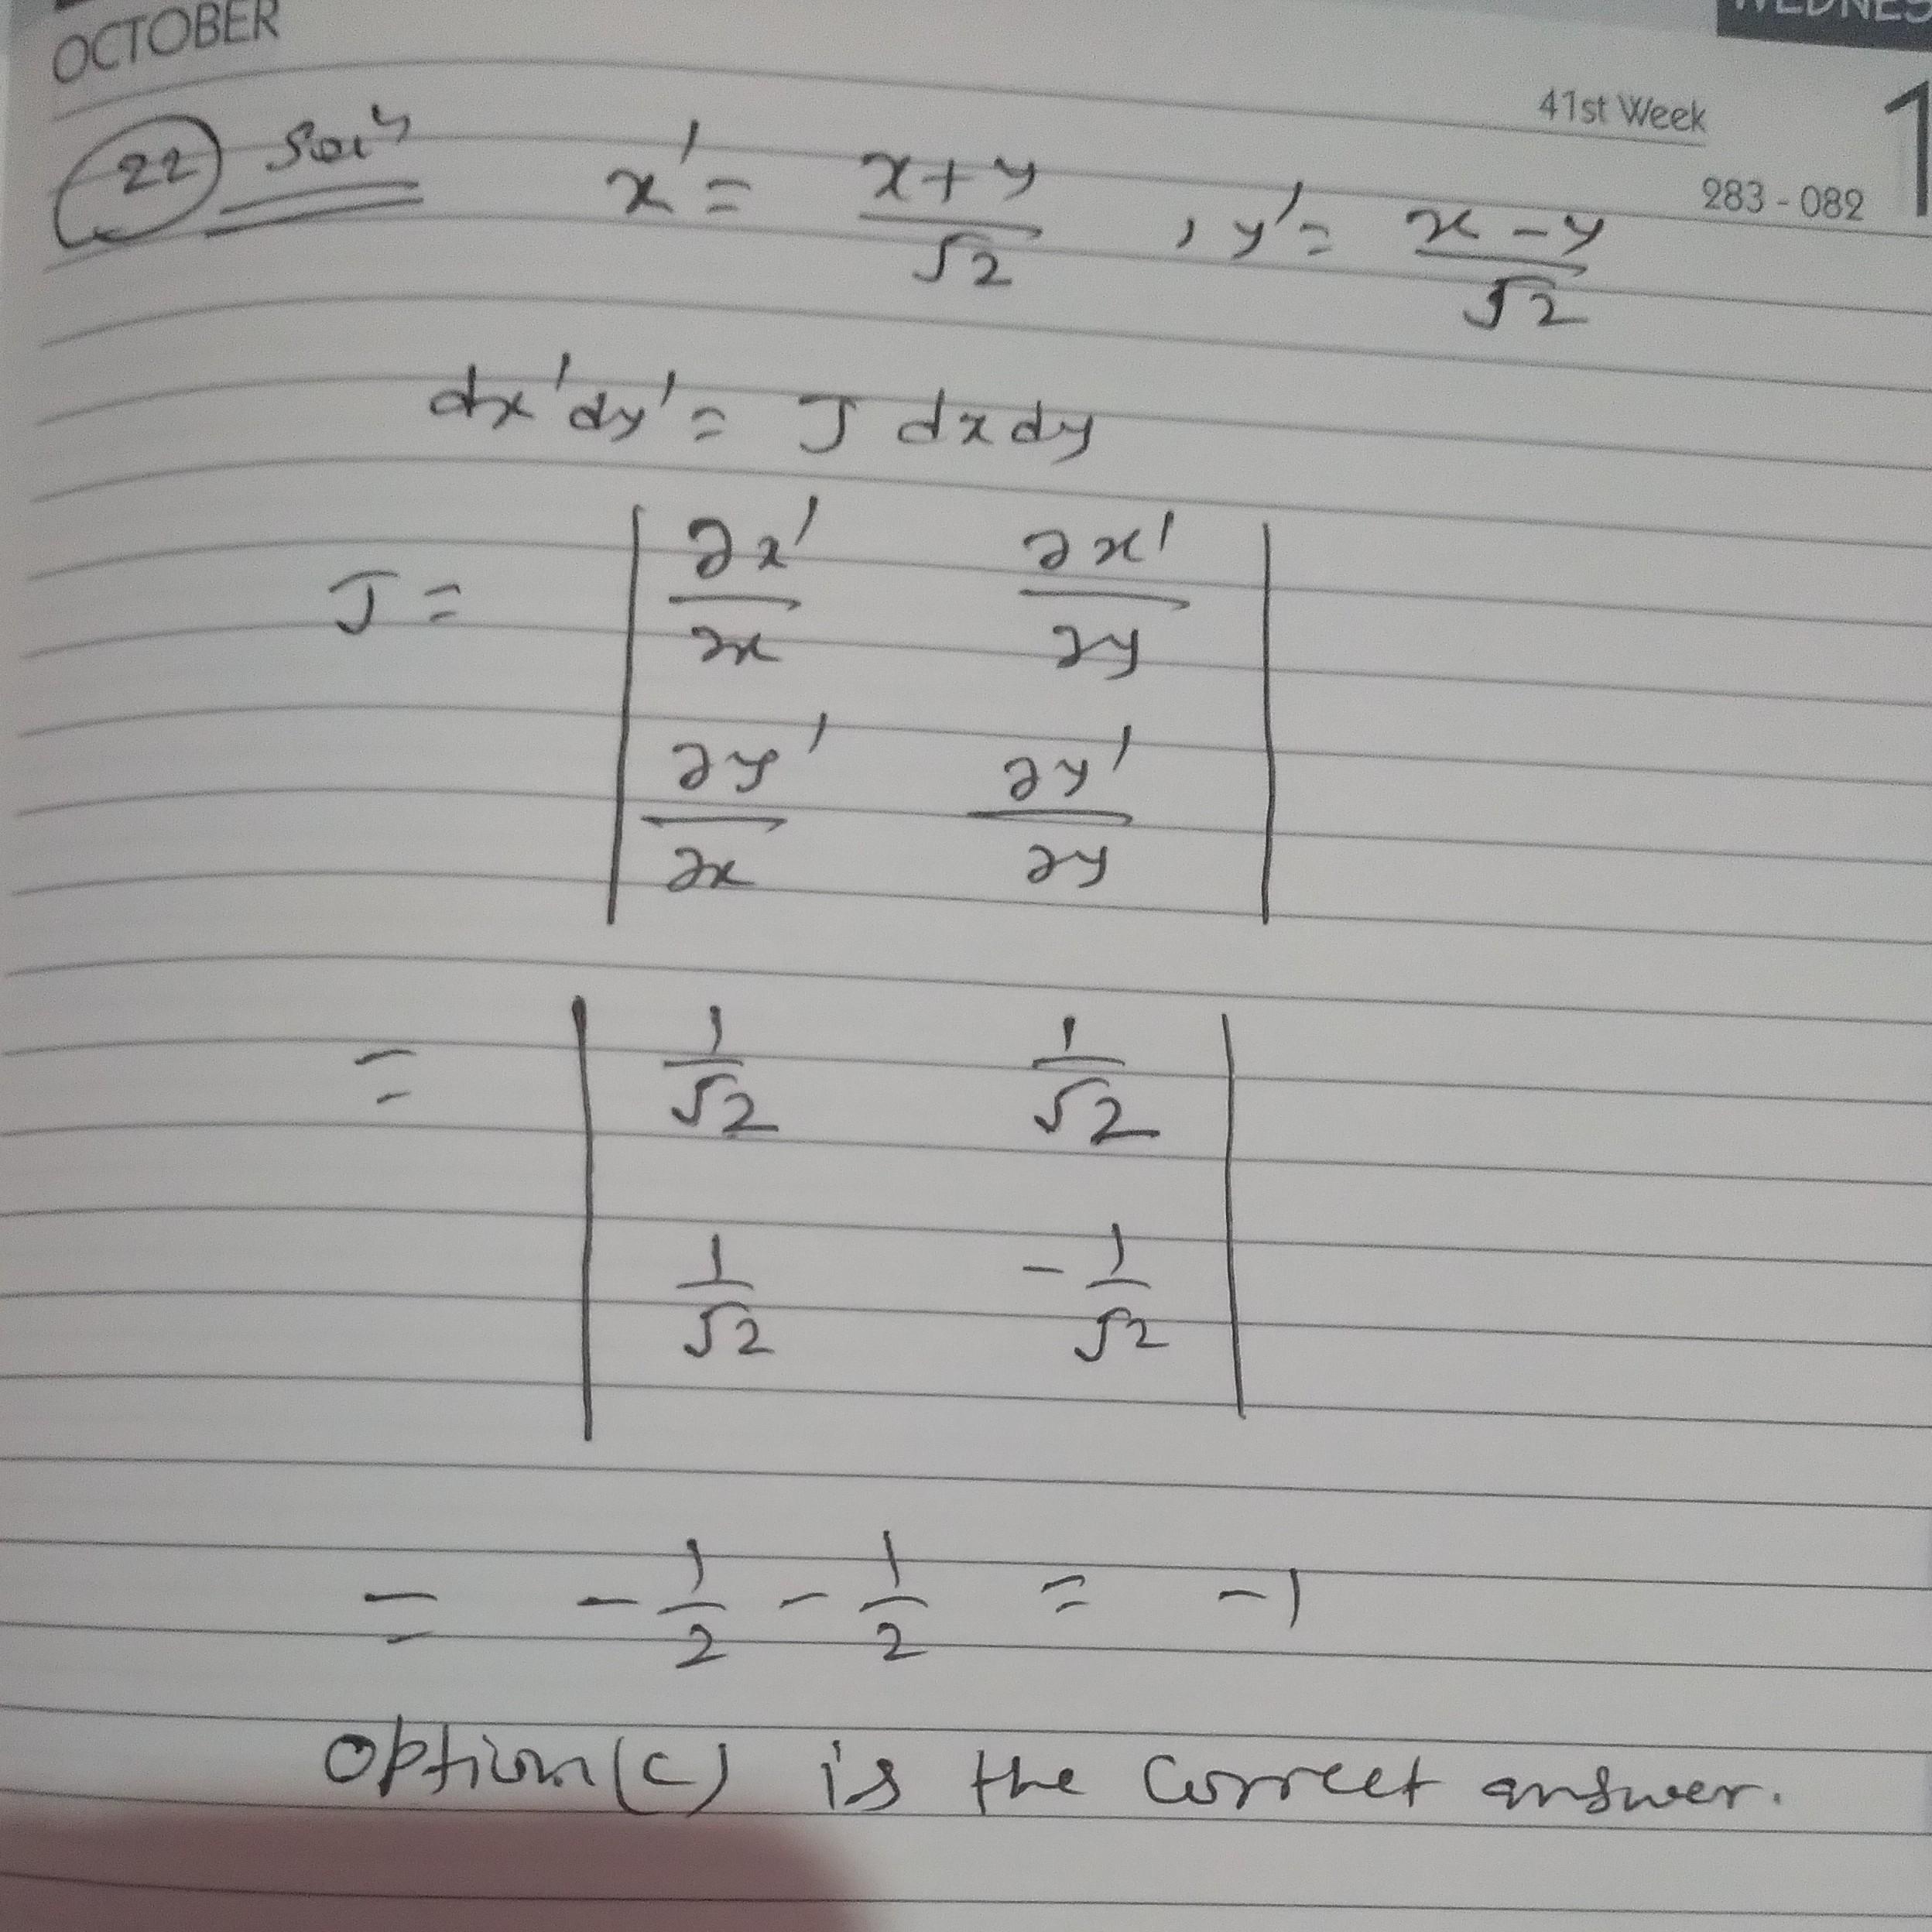 OCTOBER
WEDNES
41st Week
283 - 082
1
22 Solⁿ x' = x+y/√2 , y' = x-y/√2
dx'dy' = J dxdy
J = | ∂x'/∂x ∂x'/∂y |
| ∂y'/∂x ∂y'/∂y |
= | 1/√2 1/√2 |
| 1/√2 -1/√2 |
= -1/2 - 1/2 = -1
Option(c) is the correct answer.